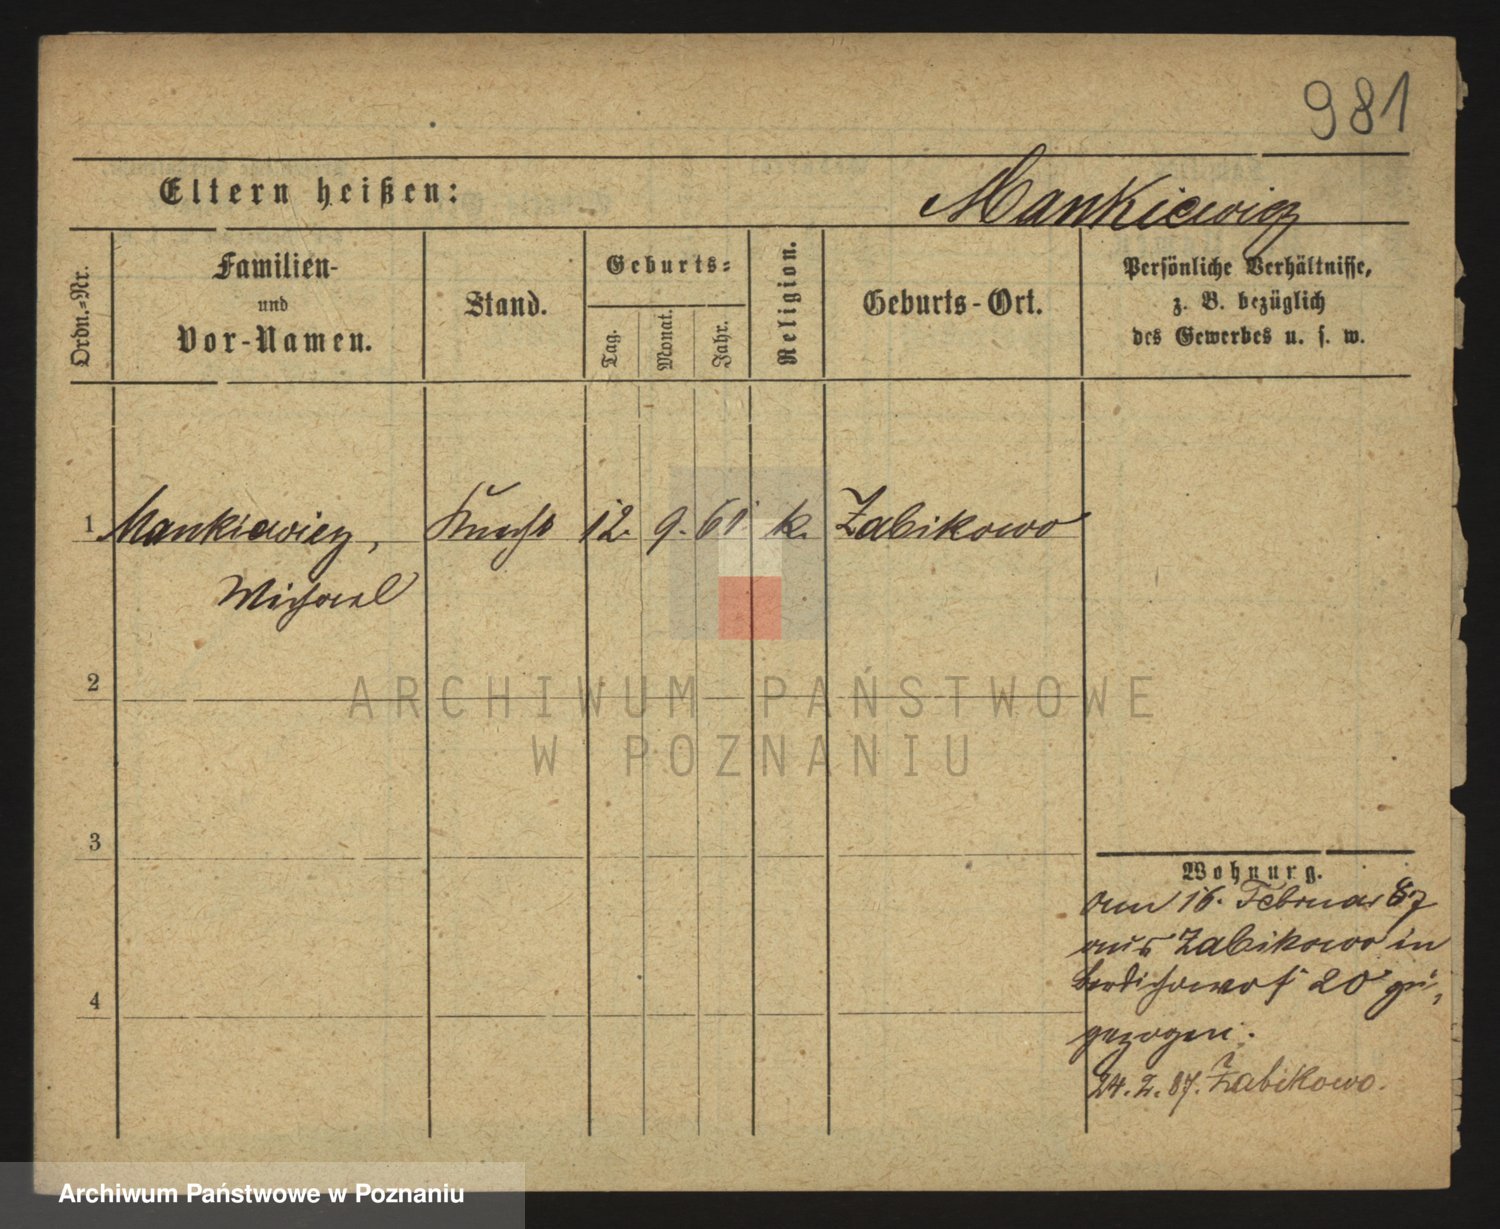 981
Eltern heißen:
Mankiewicz
Ordn.-Nr.
Familien-
und
Vor-Namen.
Stand.
Geburts-
Tag.
Monat.
Jahr.
Religion.
Geburts-Ort.
Persönliche Verhältnisse,
z. B. bezüglich
des Gewerbes u. s. w.
1 Mankiewicz, Knecht 12. 9. 61 k. Zabikowo
Michael
2
ARCHIWUM PAŃSTWOWE
W POZNANIU
3
Wohnung.
am 16. Februar 87
aus Zabikowo in
20 zu,
4
gezogen.
24. 2. 87. Zabikowo.
Archiwum Państwowe w Poznaniu